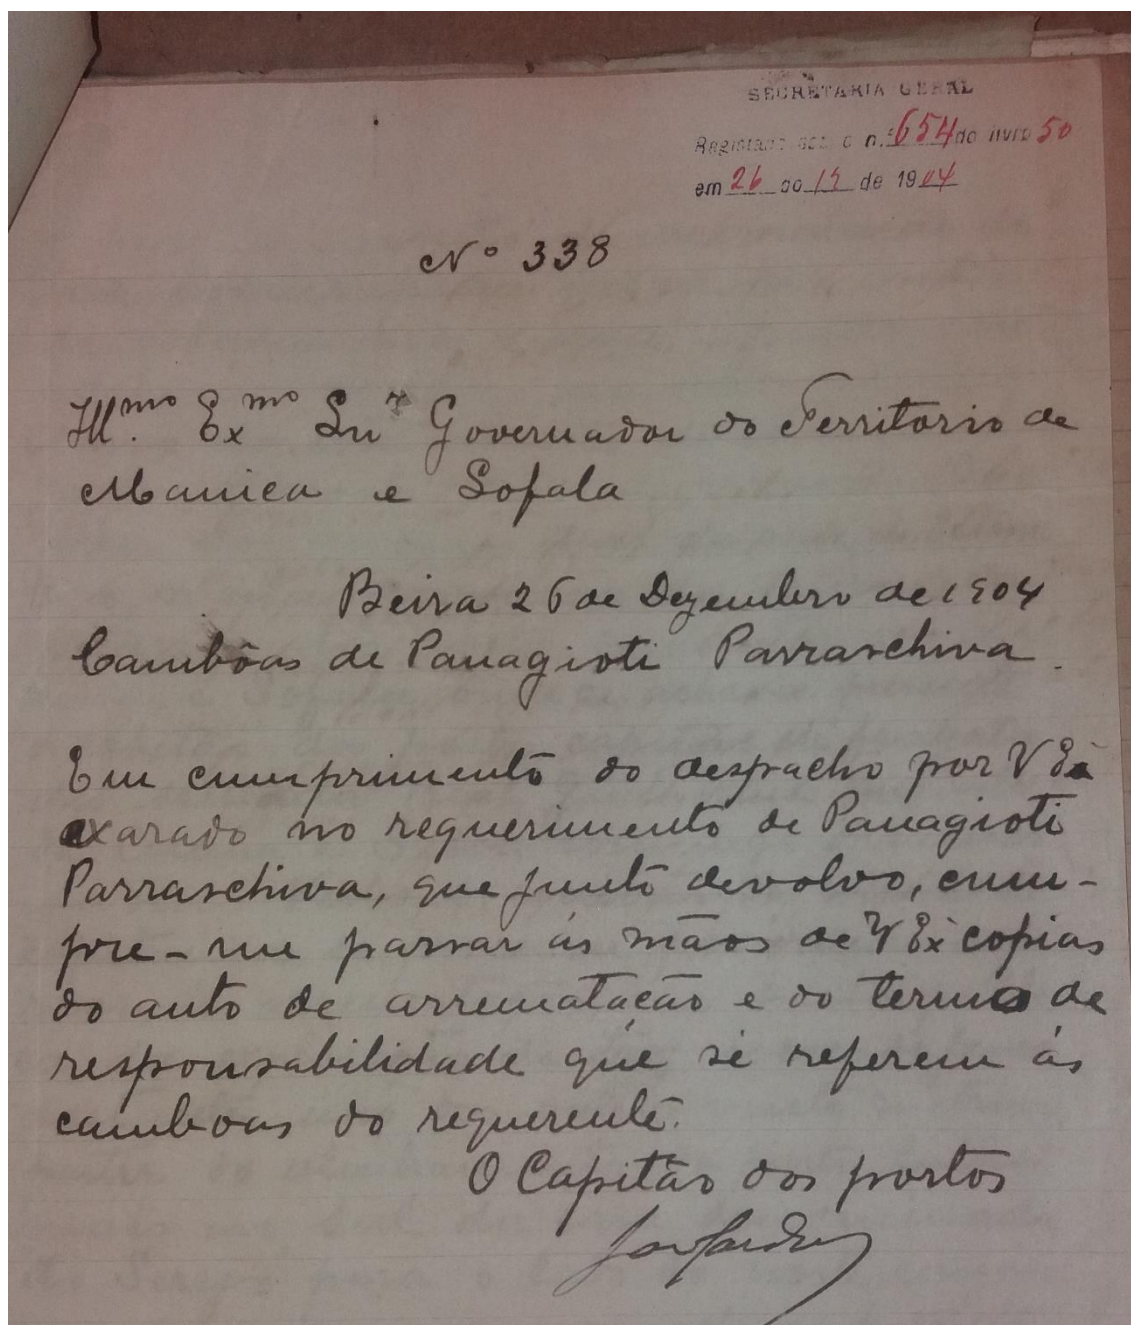 SECRETARIA GERAL
Registado sob o n.º 654 do livro 50
em 26 do 12 de 1904
Nº 338
Illmo. Exmo Snr Governador do Territorio de
Manica e Sofala
Beira 26 de Dezembro de 1904
Cambôas de Panagioti Parraschiva.
Em cumprimento do despacho por V Exa
exarado no requerimento de Panagioti
Parraschiva, que junto devolvo, cum-
pre-me passar ás mãos de V Exa copias
do auto de arrematação e do termo de
responsabilidade que se referem ás
camboas do requerente.
O Capitão dos portos